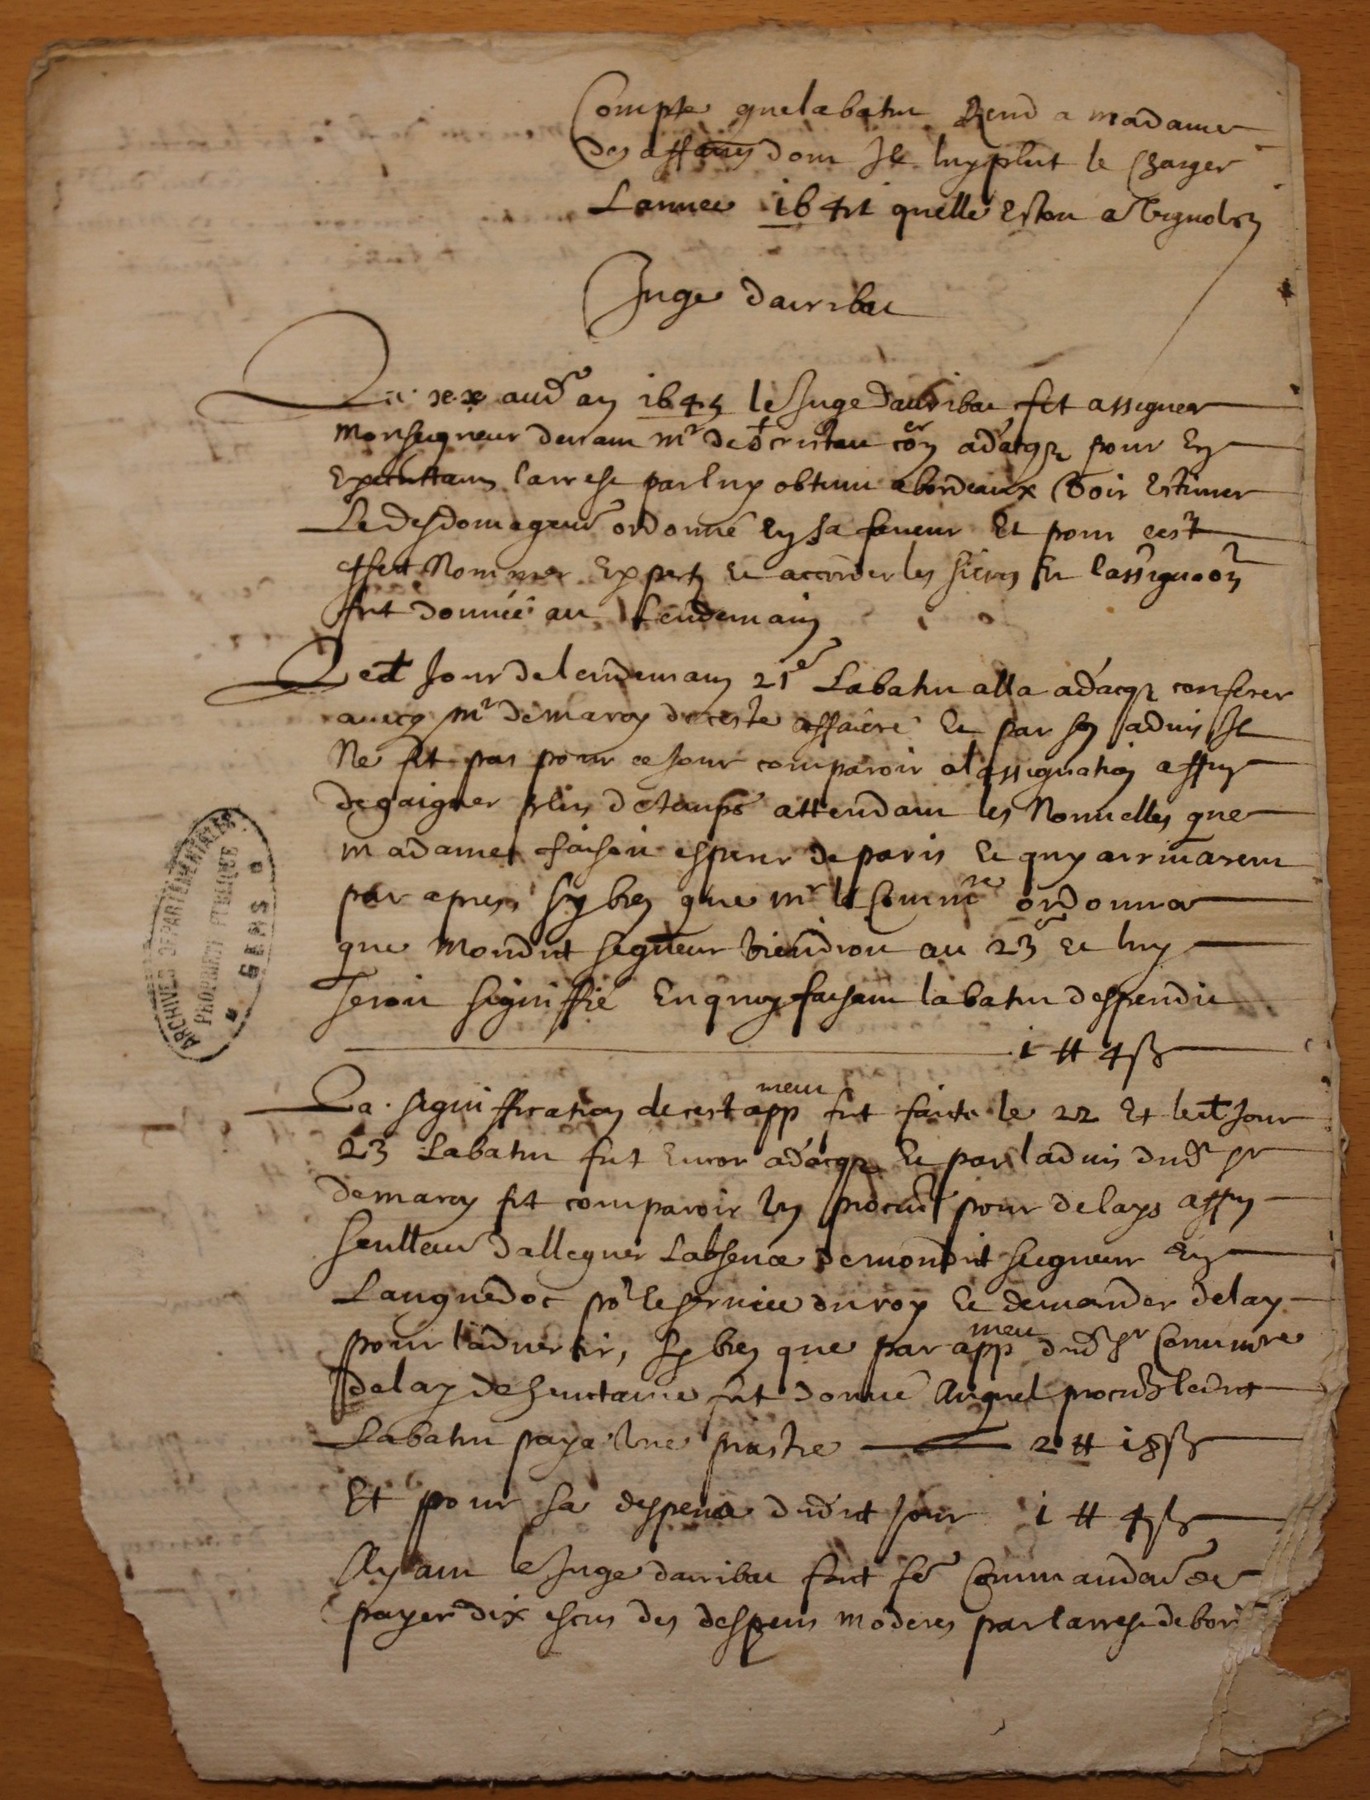 Compte que labatut Rend a madame
des affaires dont Il luy plut le charger
Lannee 1645 quelle estoit a vignolis
Juge dauribat
Le xx aud an 1645 le Juge dauribat fit assigner
Monseigneur devant mr de cristau con.er adacqz pour en
executtant larrest par luy obtenu abordeaux voir estimer
Le desdomagement ordonné en sa faveur Et pour cest
effect Nommer Expertz et accorder les siens et lassigna.on
fut donnée au Lendemain
Led Jour de lendemain 21e Labatut alla adacqz conferer
avecq mr demaroy de ceste affaire et par son advis Il
Ne fit pas pour ce Jour comparoir a lassignation affin
degaigner plus de temps attendant les Nouvelles que
madame faisoit esperer de paris et quy arrivarent
par apres, sy bien que mr le Comm.re ordonna
que mondit seigneur viendroit au 23e et luy
seroit signiffié En quoy faisant labatut despendit
i tt 4 ß
La signiffication de cest app.ment fut faite le 22 Et led Jour
23 Labatut fut Encor adacqz et par ladvis dud sr
demaroy fit comparoir un procur pour delays affin
seullem.t dalleguer Labsence de mondit seigneur En
Languedoc po.r le service du roy et demander delay
pour ladvertir, sy bien que par app.ment dud sr Commre
delay de huictaine fut donné Auquel procur ledit
Labatut paya une piastre 2 tt 18 ß
Et pour sa despence dudit Jour i tt 4 ß
Ayant le Juge dauribat fait fe Commandem.t de
payer dix escus des despens moderes par larrest de bor
ARCHIVES DEPARTEMENTALES
PROPRIETE PUBLIQUE
GERS